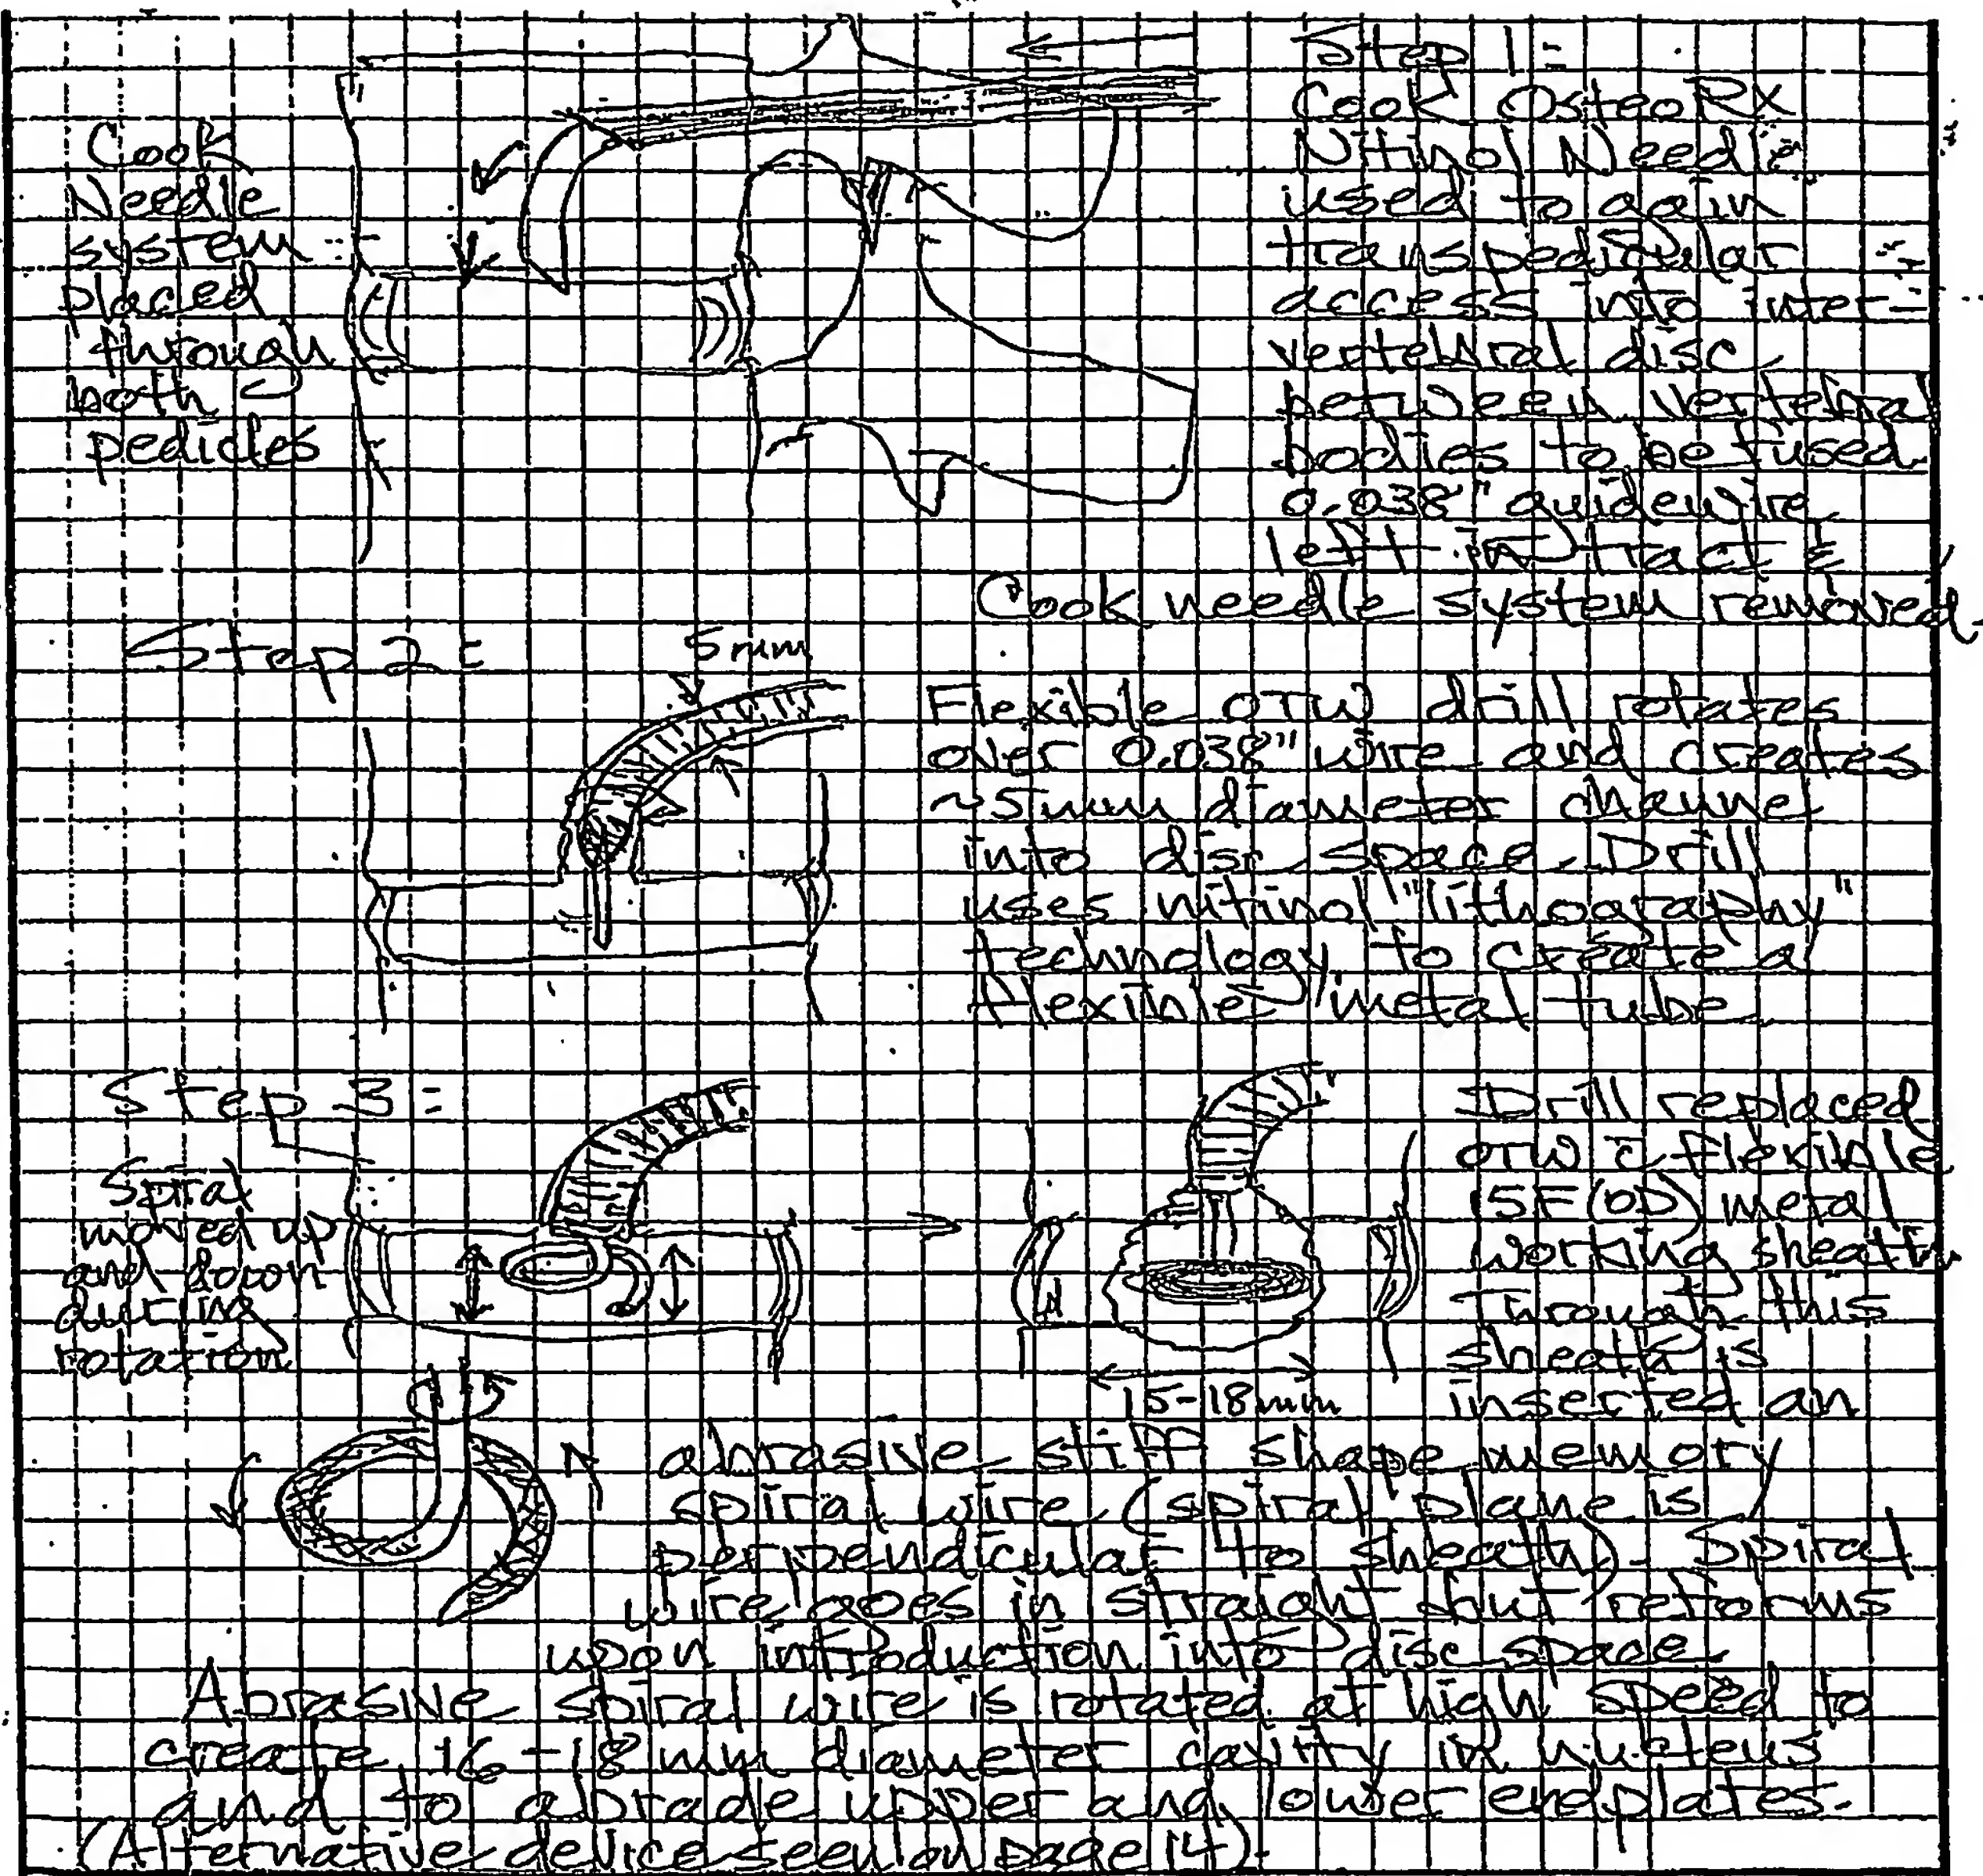 Step 1:
Cook OsteoRx
Nitinol Needle
used to gain
transpedicular
access into inter-
vertebral disc
between vertebral
bodies to be fused.
0.038" guidewire
left in tract &
Cook needle system removed.
Cook
Needle
system
placed
through
both
pedicles
Step 2:
5 mm
Flexible OTW drill rotates
over 0.038" wire and creates
~5mm diameter channel
into disc space. Drill
uses nitinol "lithography"
technology to create a
flexible metal tube
Step 3:
Spiral
moved up
and down
during
rotation
15-18mm
Drill replaced
OTW c̄ flexible
15F (OD) metal
working sheath
Through this
sheath is
inserted an
abrasive stiff shape memory
spiral wire (spiral plane is
perpendicular to sheath). Spiral
wire goes in straight but reforms
upon introduction into disc space
Abrasive spiral wire is rotated at high speed to
create 16-18 mm diameter cavity in nucleus
and to abrade upper and lower endplates.
(Alternative device seen on page 14).